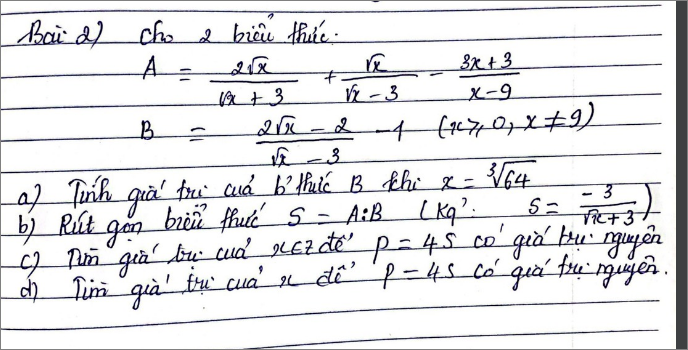 Bài 2) Cho 2 biểu thức.
A = 2√x / (√x + 3) + √x / (√x - 3) - (3x + 3) / (x - 9)
B = (2√x - 2) / (√x - 3) - 1 (x ≥ 0, x ≠ 9)
a) Tính giá trị của b' thức B khi x = ∛64
b) Rút gọn biểu thức S = A:B (Kq': S = -3 / (√x + 3))
c) Tìm giá trị của x∈Z để P = 4S có giá trị nguyên
d) Tìm giá trị của x để P = 4S có giá trị nguyên.